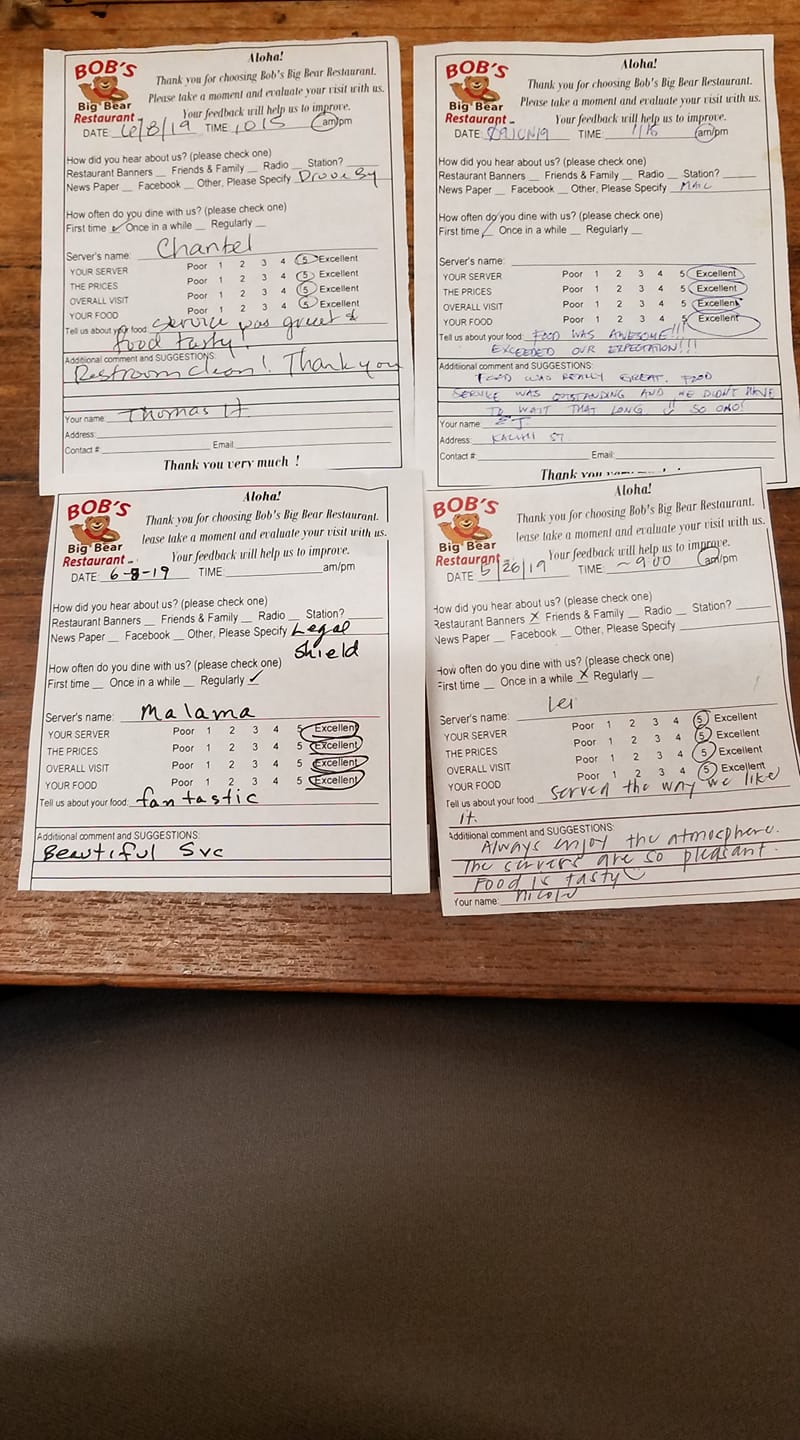 BOB'S
Big Bear
Restaurant
Aloha!
Thank you for choosing Bob's Big Bear Restaurant.
Please take a moment and evaluate your visit with us.
Your feedback will help us to improve.
DATE: 6/8/19 TIME: 1015 am/pm
How did you hear about us? (please check one)
Restaurant Banners __ Friends & Family __ Radio __ Station? ____
News Paper __ Facebook __ Other, Please Specify Drove By
How often do you dine with us? (please check one)
First time ✓ Once in a while __ Regularly __
Server's name: Chantel
YOUR SERVER Poor 1 2 3 4 5 Excellent
THE PRICES Poor 1 2 3 4 5 Excellent
OVERALL VISIT Poor 1 2 3 4 5 Excellent
YOUR FOOD Poor 1 2 3 4 5 Excellent
Tell us about your food: Service was great &
food tasty!
Additional comment and SUGGESTIONS:
Restroom clean! Thank you
Your name: Thomas H
Address:
Contact #: Email:
Thank you very much !
BOB'S
Big Bear
Restaurant
Aloha!
Thank you for choosing Bob's Big Bear Restaurant.
Please take a moment and evaluate your visit with us.
Your feedback will help us to improve.
DATE: 89JUN19 TIME: am/pm
How did you hear about us? (please check one)
Restaurant Banners __ Friends & Family __ Radio __ Station? ____
News Paper __ Facebook __ Other, Please Specify MAIL
How often do you dine with us? (please check one)
First time ✓ Once in a while __ Regularly __
Server's name:
YOUR SERVER Poor 1 2 3 4 5 Excellent
THE PRICES Poor 1 2 3 4 5 Excellent
OVERALL VISIT Poor 1 2 3 4 5 Excellent
YOUR FOOD Poor 1 2 3 4 5 Excellent
Tell us about your food: FOOD WAS AWESOME!!!
EXCEEDED OUR EXPECTATION!!!
Additional comment and SUGGESTIONS:
FOOD WAS REALLY GREAT. FOOD
SERVICE WAS OUTSTANDING AND WE DIDN'T HAVE
TO WAIT THAT LONG. SO ONO!
Your name: EJ
Address: KALANI ST
Contact #: Email:
Thank you very much !
BOB'S
Big Bear
Restaurant
Aloha!
Thank you for choosing Bob's Big Bear Restaurant.
lease take a moment and evaluate your visit with us.
Your feedback will help us to improve.
DATE: 6-8-19 TIME: am/pm
How did you hear about us? (please check one)
Restaurant Banners __ Friends & Family __ Radio __ Station? ____
News Paper __ Facebook __ Other, Please Specify Legal
Shield
How often do you dine with us? (please check one)
First time __ Once in a while __ Regularly ✓
Server's name: Malama
YOUR SERVER Poor 1 2 3 4 5 Excellent
THE PRICES Poor 1 2 3 4 5 Excellent
OVERALL VISIT Poor 1 2 3 4 5 Excellent
YOUR FOOD Poor 1 2 3 4 5 Excellent
Tell us about your food: fantastic
Additional comment and SUGGESTIONS:
Beautiful Svc
BOB'S
Big Bear
Restaurant
Aloha!
Thank you for choosing Bob's Big Bear Restaurant.
lease take a moment and evaluate your visit with us.
Your feedback will help us to improve.
DATE: 5/26/19 TIME: ~9:00 am/pm
How did you hear about us? (please check one)
Restaurant Banners X Friends & Family __ Radio __ Station? ____
News Paper __ Facebook __ Other, Please Specify
How often do you dine with us? (please check one)
First time __ Once in a while X Regularly __
Server's name: Lei
YOUR SERVER Poor 1 2 3 4 5 Excellent
THE PRICES Poor 1 2 3 4 5 Excellent
OVERALL VISIT Poor 1 2 3 4 5 Excellent
YOUR FOOD Poor 1 2 3 4 5 Excellent
Tell us about your food: Served the way we like
it.
Additional comment and SUGGESTIONS:
Always enjoy the atmosphere.
The servers are so pleasant.
Food is tasty
Your name: